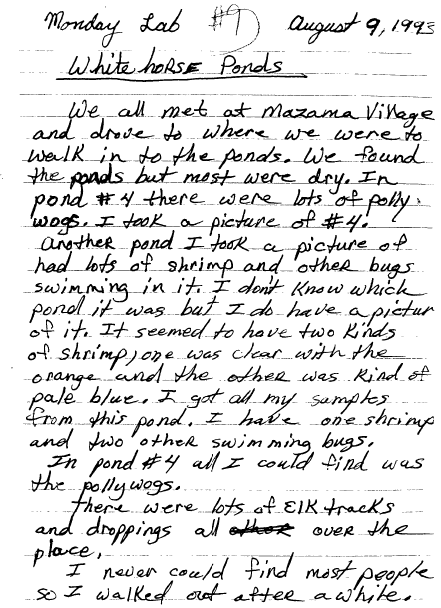 Monday Lab #9 August 9, 1993
Whitehorse Ponds
We all met at Mazama Village
and drove to where we were to
walk in to the ponds. We found
the ponds but most were dry. In
pond #4 there were lots of polly
wogs. I took a picture of #4.
Another pond I took a picture of
had lots of shrimp and other bugs
swimming in it. I don't know which
pond it was but I do have a pictur
of it. It seemed to have two kinds
of shrimp, one was clear with the
orange and the other was kind of
pale blue. I got all my samples
from this pond. I have one shrimp
and two other swimming bugs.
In pond #4 all I could find was
the pollywogs.
There were lots of Elk tracks
and droppings all over the
place.
I never could find most people
so I walked out after a while.